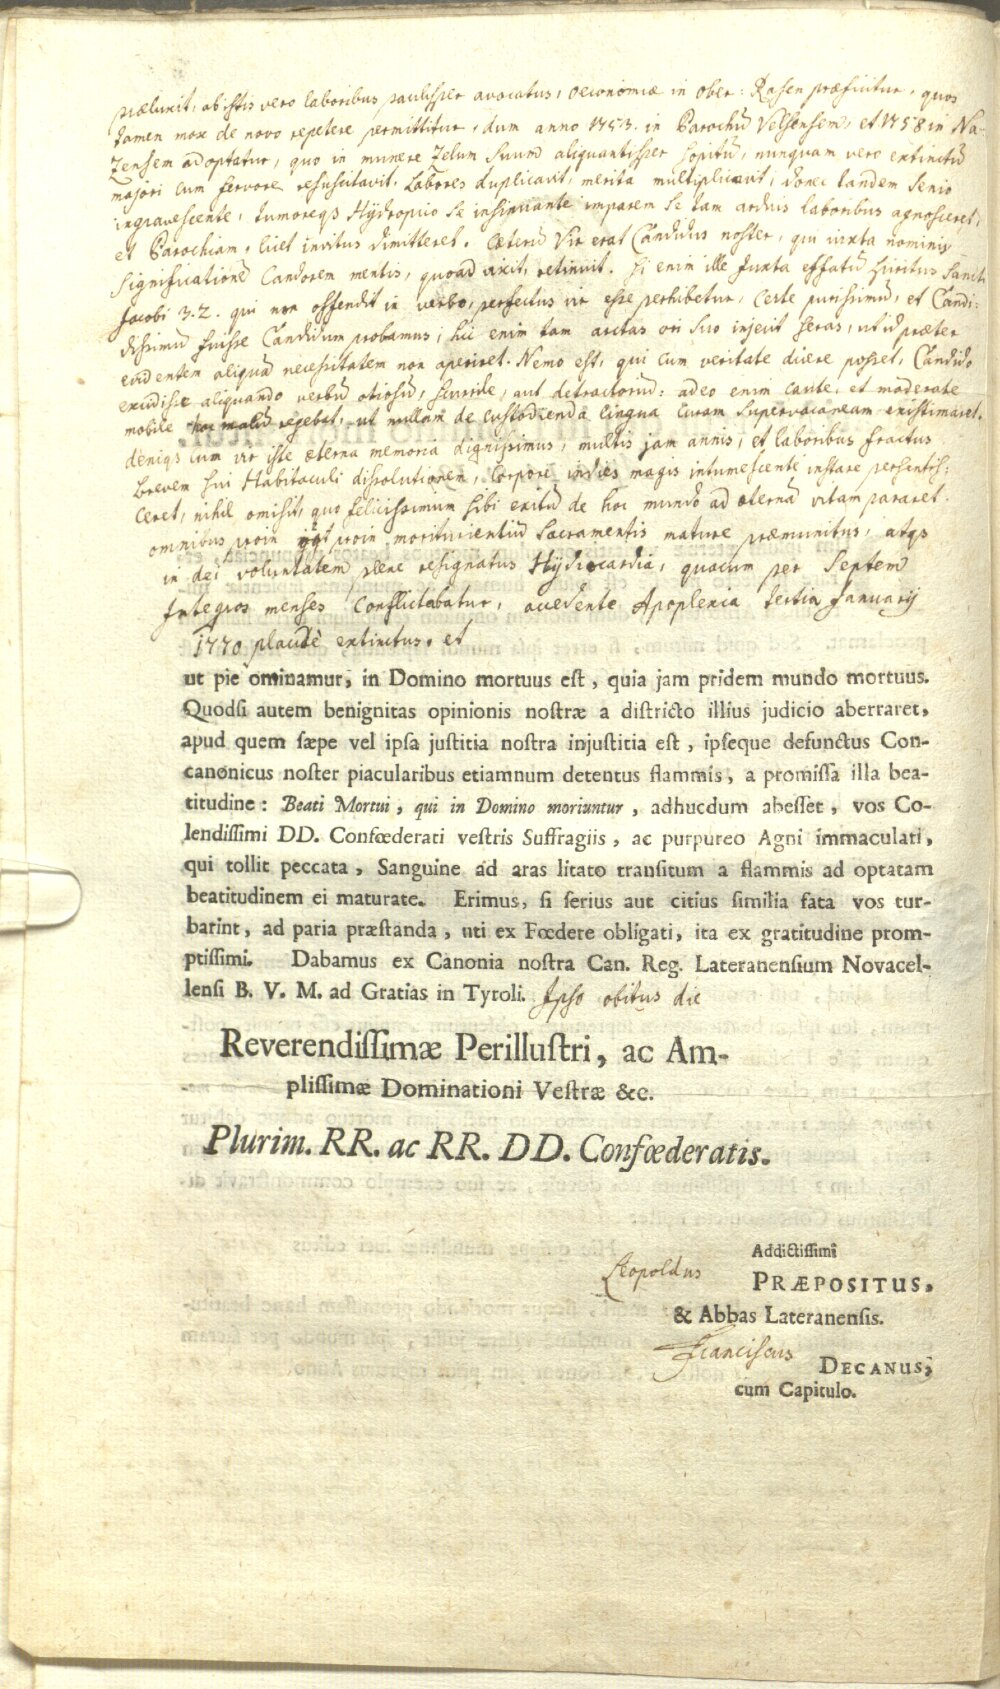 præluxit, ab istis vero laboribus paulisper avocatus, oeconomiæ in Ober-Rasen præficitur, quos
tamen mox de novo repetere permittitur, dum anno 1753. in Parochū Velsensem, et 1758 in Na-
zensem adoptatur, quo in munere zelum suum aliquantisper sopitū, nunquam vero extinctū
majori cum fervore resuscitavit, Labores duplicavit, merita multiplicavit, donec tandem senio
ingravescente, tumoreqs Hydropico se insinuante imparem se tam arduis laboribus agnosceret,
et Parochiam, licet invitus dimitteret. Cæterū Vir erat Candidus noster, qui iuxta nominis
significationē Candorem mentis, quoad vixit, retinuit. Si enim ille Juxta effatū Spiritus Sancti
Jacobi 3. 2. qui non offendit in verbo, perfectus vir esse perhibetur, Certe purissimū, et Candi-
dissimū fuisse Candidum probamus; hic enim tam arctas ori suo injecit seras, ut id præter
evidentem aliquā necessitatem non aperiret. Nemo est, qui cum veritate dicere posset, Candido
excidisse aliquando verbū otiosū, scurrile, aut detractoriū: adeo enim caute, et moderate
mobile hoc malū regebat, ut nullam de custodienda lingua curam supervacaneam existimaret.
deniqs cum vir iste æterna memoria dignissimus, multis jam annis, et laboribus fractus
brevem sui Habitaculi dissolutionem, Corpore indies magis intumescente instare persentis-
ceret, nihil omisit, quo felicissimum sibi exitū de hoc mundo ad æternā vitam pararet.
omnibus proin morituientiū Sacramentis mature præmunitus, atqs
in dei voluntatem plene resignatus Hydrocardia, quacum per Septem
Integros menses Conflictabatur, accedente Apoplexia tertia Januarij
1770 placidè extinctus. et
ut pie ominamur, in Domino mortuus est, quia jam pridem mundo mortuus.
Quodsi autem benignitas opinionis nostræ a districto illius judicio aberraret,
apud quem sæpe vel ipsa justitia nostra injustitia est, ipseque defunctus Con-
canonicus noster piacularibus etiamnum detentus flammis, a promissa illa bea-
titudine: Beati Mortui, qui in Domino moriuntur, adhucdum abesset, vos Co-
lendissimi DD. Confœderati vestris Suffragiis, ac purpureo Agni immaculati,
qui tollit peccata, Sanguine ad aras litato transitum a flammis ad optatam
beatitudinem ei maturate. Erimus, si serius aut citius similia fata vos tur-
barint, ad paria præstanda, uti ex Fœdere obligati, ita ex gratitudine prom-
ptissimi. Dabamus ex Canonia nostra Can. Reg. Lateranensium Novacel-
lensi B. V. M. ad Gratias in Tyroli. Ipso obitus die
Reverendissimæ Perillustri, ac Am-
plissimæ Dominationi Vestræ &c.
Plurim. RR. ac RR. DD. Confœderatis.
Addictissimi
Leopoldus PRÆPOSITUS,
& Abbas Lateranensis.
Franciscus DECANUS,
cum Capitulo.